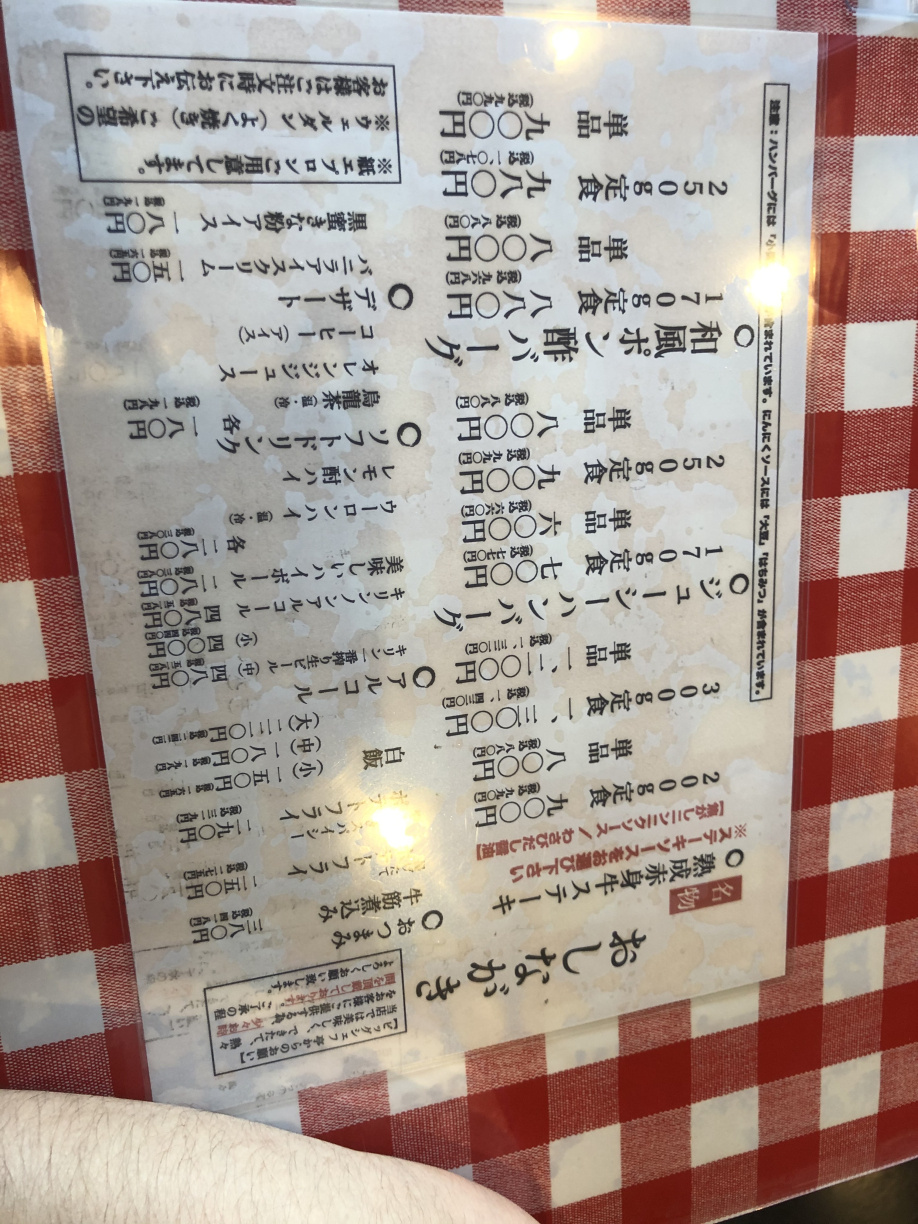 おしながき
名物
○熟成赤身牛ステーキ
※ステーキソースをお選び下さい
【焦がしニンニクソース／わさびだし醤油】
200g定食 九〇〇円 (税込九九〇円)
単品 八〇〇円 (税込八八〇円)
300g定食 一、三〇〇円 (税込一、四三〇円)
単品 一、二〇〇円 (税込一、三二〇円)
○ジューシーハンバーグ
170g定食 七〇〇円 (税込七七〇円)
単品 六〇〇円 (税込六六〇円)
250g定食 九〇〇円 (税込九九〇円)
単品 八〇〇円 (税込八八〇円)
○和風ポン酢バーグ
170g定食 八八〇円 (税込九六八円)
単品 八〇〇円 (税込八八〇円)
250g定食 九八〇円 (税込一、〇七八円)
単品 九〇〇円 (税込九九〇円)
注意：ハンバーグには「小 まれています。にんにくソースには「大豆」「はちみつ」が含まれています。
【ビッグシェフ亭からのお願い】
当店では美味しく、できたて、熱々
をお客様にご提供する為、少々お時
間を頂戴しております。ご了承の程
よろしくお願い致します。
○おつまみ
牛筋煮込み 三八〇円 (税込四一八円)
トフライ 二五〇円 (税込二七五円)
パイシー
トフライ 二九〇円 (税込三一九円)
白飯 (小)一五〇円 (税込一六五円)
(中)一八〇円 (税込一九八円)
(大)二二〇円 (税込二四二円)
○アルコール
キリン一番搾り生ビール (中)四八〇円 (税込五二八円)
(小)四〇〇円 (税込四四〇円)
キリンノンアルコール 四八〇円 (税込五二八円)
美味しいハイボール 二八〇円 (税込三〇八円)
ウーロンハイ(温・冷) 各二八〇円 (税込三〇八円)
レモン酎ハイ
○ソフトドリンク 各一八〇円 (税込一九八円)
烏龍茶(温・冷)
オレンジジュース
コーヒー(アイス)
○デザート
バニラアイスクリーム 一五〇円 (税込一六五円)
黒蜜きな粉アイス 一八〇円 (税込一九八円)
※紙エプロンご用意してます。
※ウェルダン(よく焼き)ご希望の
お客様はご注文時にお伝え下さい。